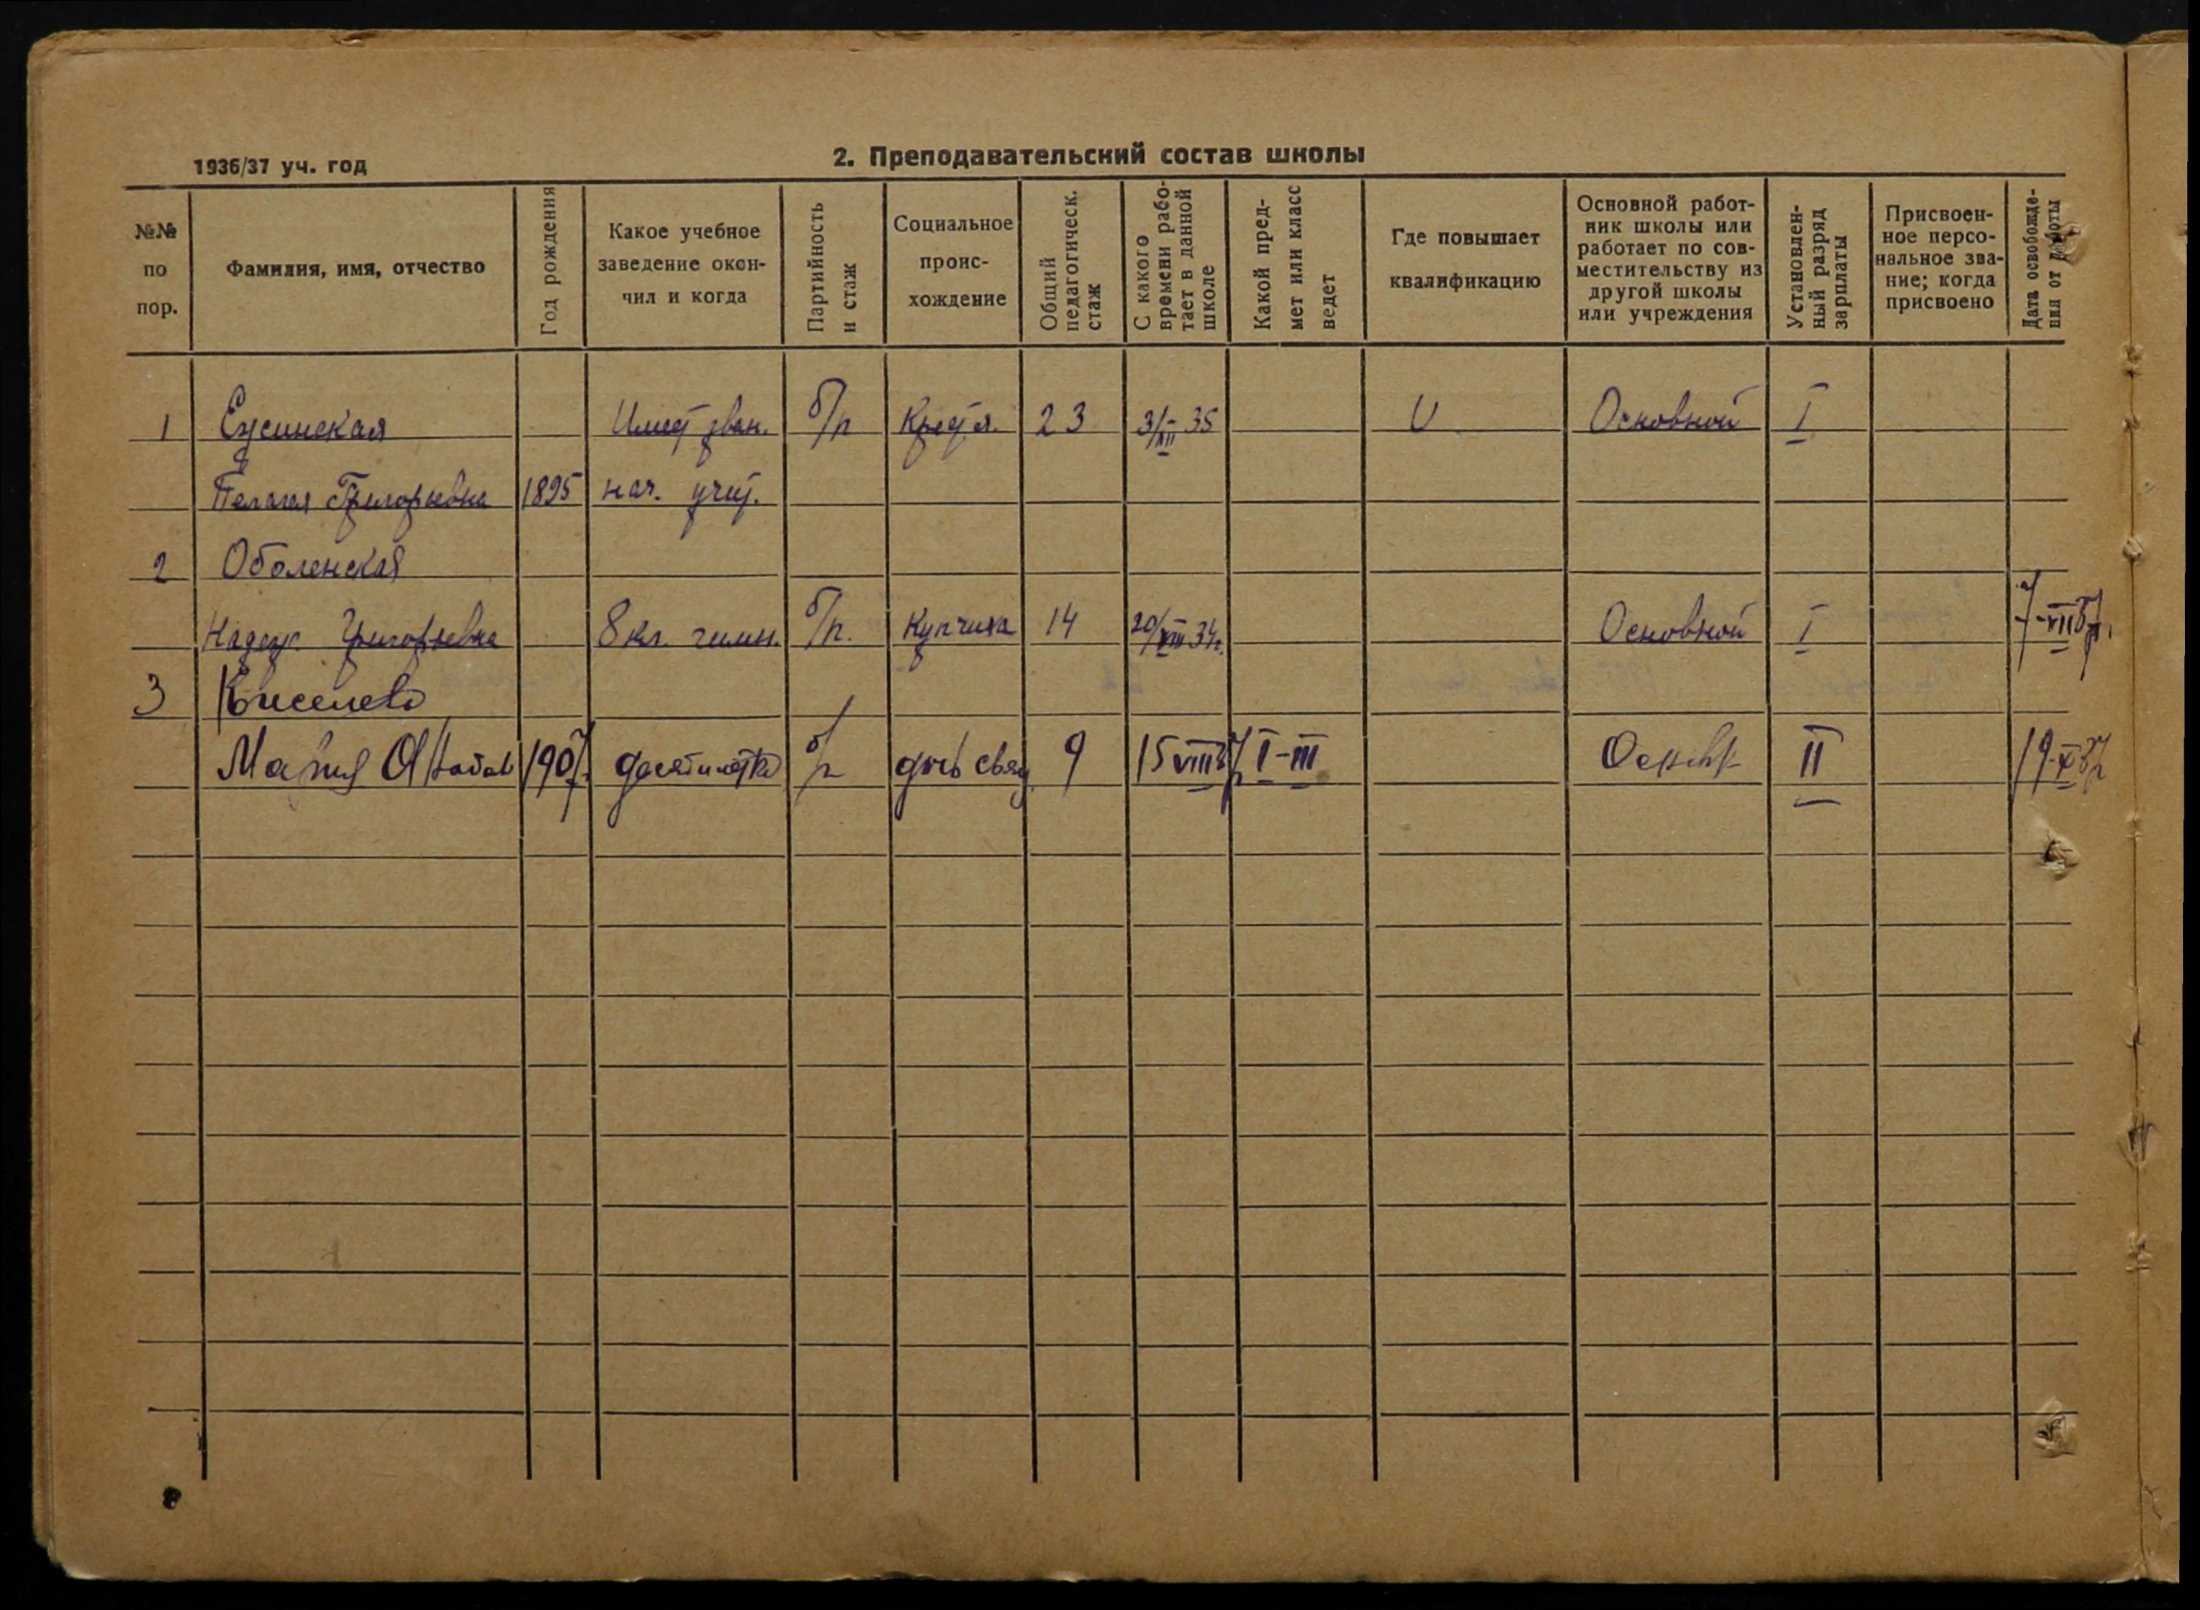 1936/37 уч. год
2. Преподавательский состав школы
№№ по пор.
Фамилия, имя, отчество
Год рождения
Какое учебное заведение окончил и когда
Партийность и стаж
Социальное происхождение
Общий педагогическ. стаж
С какого времени работает в данной школе
Какой предмет или класс ведет
Где повышает квалификацию
Основной работник школы или работает по совместительству из другой школы или учреждения
Установленный разряд зарплаты
Присвоенное персональное звание; когда присвоено
Дата освобождения от работы
1 Имеет зван. б/п 23 35 Основной I
Пелагея Григорьевна 1895 нач. учит.
2 Оболенская
Надежд. Григорьевна 8 кл. гимн. б/п. Купчиха 14 20/VIII 34г. Основной I 7-VII 37г.
3 Киселева
Мария 1907 десятилетка б/п дочь 9 15 VIII 37 I-III II 19-XI 37г
8